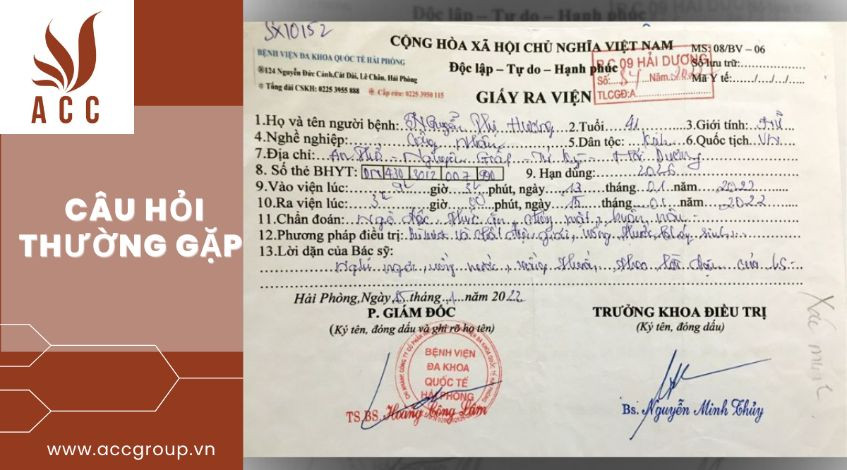 ACC
CÂU HỎI
THƯỜNG GẶP
www.accgroup.vn
SX10152
Độc lập – Tự do – Hạnh phúc
BỆNH VIỆN ĐA KHOA QUỐC TẾ HẢI PHÒNG
124 Nguyễn Đức Cảnh, Cát Dài, Lê Chân, Hải Phòng
Tổng đài CSKH: 0225 3955 888 Cấp cứu: 0225 3950 115
CỘNG HÒA XÃ HỘI CHỦ NGHĨA VIỆT NAM
Độc lập – Tự do – Hạnh phúc
MS: 08/BV – 06
Số lưu trữ:
Mã Y tế:..../..../..../....
P.C 09 HẢI DƯƠNG
Số: 84 Năm:
TLCGĐ:A
GIẤY RA VIỆN
1.Họ và tên người bệnh: Nguyễn Thị Hương 2.Tuổi: 41 3.Giới tính: Nữ
4.Nghề nghiệp: Công nhân 5.Dân tộc: Kinh 6.Quốc tịch: VN
7.Địa chỉ: Hải Dương
8. Số thẻ BHYT: DN 430 3012 007 990 9. Hạn dùng:
9.Vào viện lúc: giờ phút, ngày 13 tháng 01 năm 2022
10.Ra viện lúc: giờ 00 phút, ngày 15 tháng 01 năm 2022
11.Chẩn đoán: Ngộ độc thức ăn, buồn nôn
12.Phương pháp điều trị: và chất điện giải, uống thuốc kháng sinh
13.Lời dặn của Bác sỹ:
Nghỉ ngơi, uống nước, uống thuốc theo lời dặn của bs
Hải Phòng,Ngày 15 tháng 1 năm 2022
P. GIÁM ĐỐC
(Ký tên, đóng dấu và ghi rõ họ tên)
TRƯỞNG KHOA ĐIỀU TRỊ
(Ký tên, đóng dấu)
BỆNH VIỆN
ĐA KHOA
QUỐC TẾ
HẢI PHÒNG
TS.BS. Hoàng Công Lâm
Bs. Nguyễn Minh Thủy